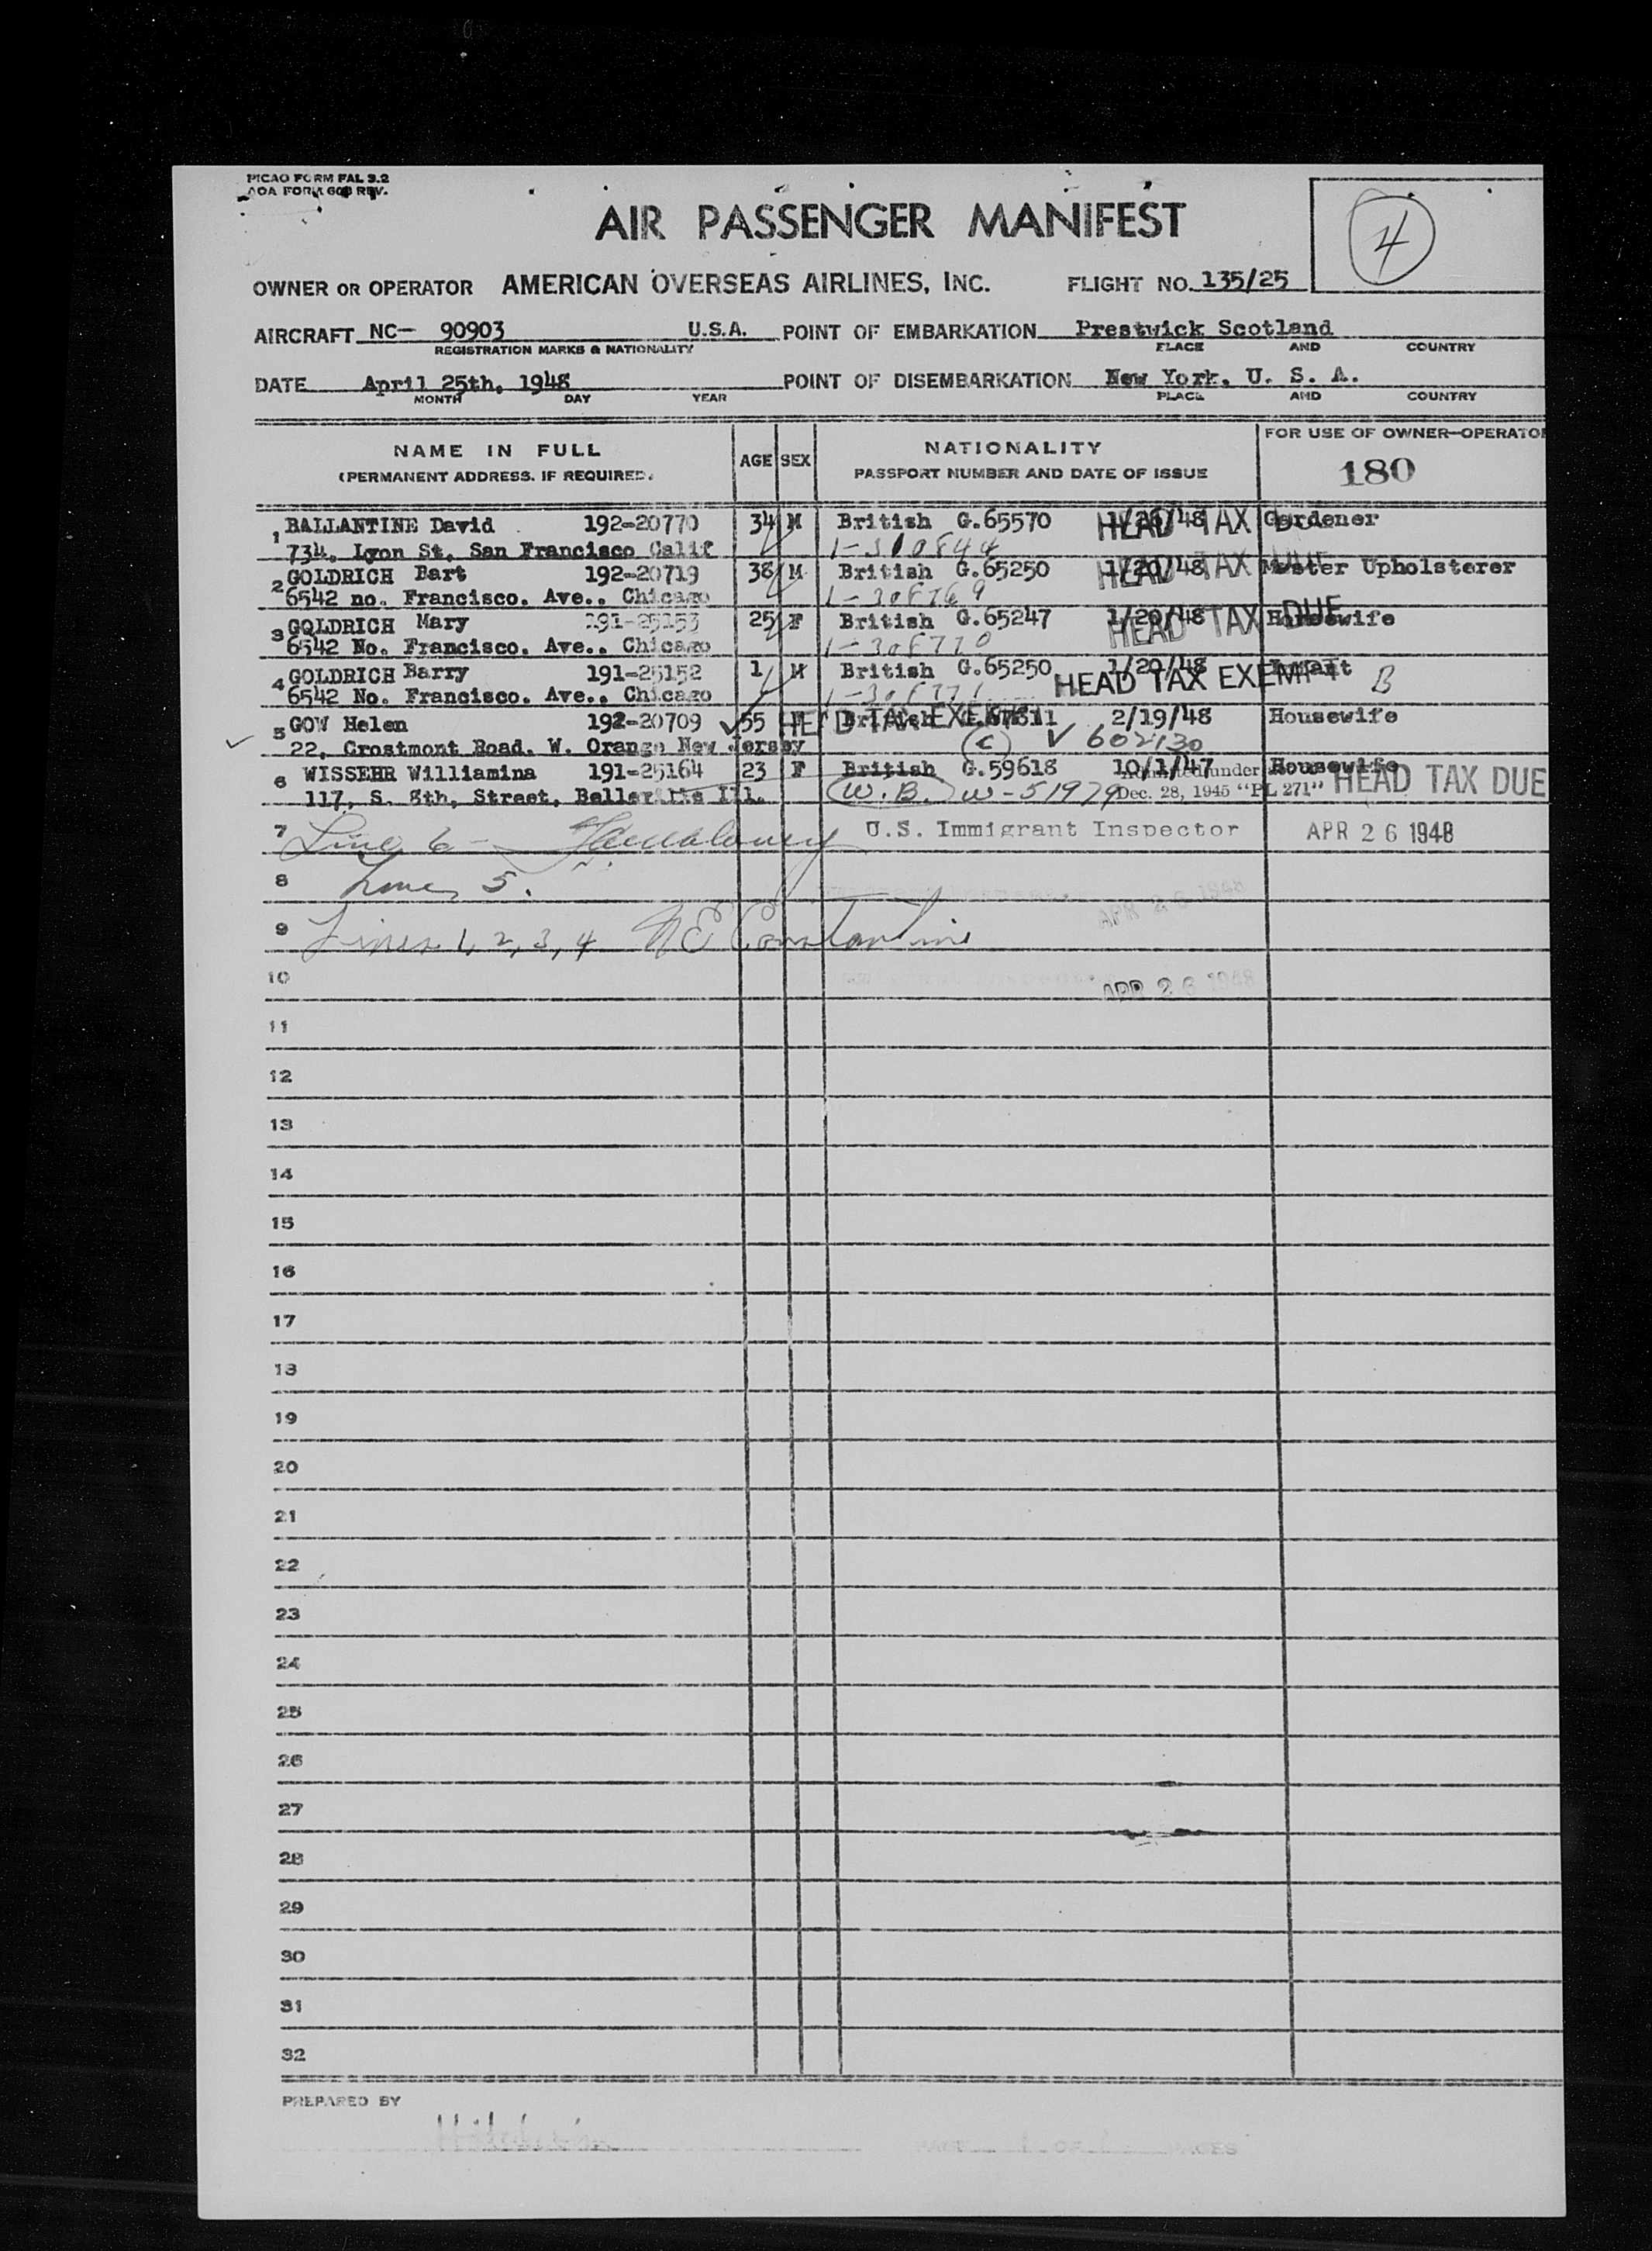 PICAO FORM FAL 3.2
AOA FORM 60B REV.
AIR PASSENGER MANIFEST
4
OWNER OR OPERATOR AMERICAN OVERSEAS AIRLINES, INC. FLIGHT NO. 135/25
AIRCRAFT NC- 90903 U.S.A. POINT OF EMBARKATION Prestwick Scotland
REGISTRATION MARKS & NATIONALITY PLACE AND COUNTRY
DATE April 25th, 1948 POINT OF DISEMBARKATION New York, U. S. A.
MONTH DAY YEAR PLACE AND COUNTRY
NAME IN FULL
(PERMANENT ADDRESS, IF REQUIRED)
AGE SEX
NATIONALITY
PASSPORT NUMBER AND DATE OF ISSUE
FOR USE OF OWNER-OPERATOR
180
1 BALLANTINE David 192-20770 34 M British G.65570 HEAD TAX Gardener
734, Lyon St, San Francisco Calif 1-310844
2 GOLDRICH Bart 192-20719 38 M British G.65250 1/20/48 HEAD TAX DUE Master Upholsterer
6542 no. Francisco. Ave., Chicago 1-308769
3 GOLDRICH Mary 191-25153 25 F British G.65247 1/20/48 HEAD TAX DUE Housewife
6542 No. Francisco. Ave., Chicago 1-308770
4 GOLDRICH Barry 191-25152 1 M British G.65250 1/20/48 HEAD TAX EXEMPT Infant B
6542 No. Francisco. Ave., Chicago 1-308771
5 GOW Helen 192-20709 55 F British 2/19/48 HEAD TAX EXEMPT Housewife
22, Crostmont Road, W. Orange New Jersey (C) V 602130
6 WISSEHR Williamina 191-25164 23 F British G.59618 10/1/47 Housewife
117, S. 8th, Street, Belleville Ill. (W.B.) W-51979 Admitted under Dec. 28, 1945 "PL 271" HEAD TAX DUE
7 Line 6 - U.S. Immigrant Inspector APR 26 1948
8 Line 5. APR 26 1948
9 Lines 1, 2, 3, 4 N E Constantine
10 APR 26 1948
11
12
13
14
15
16
17
18
19
20
21
22
23
24
25
26
27
28
29
30
31
32
PREPARED BY
PAGE 1 OF PAGES